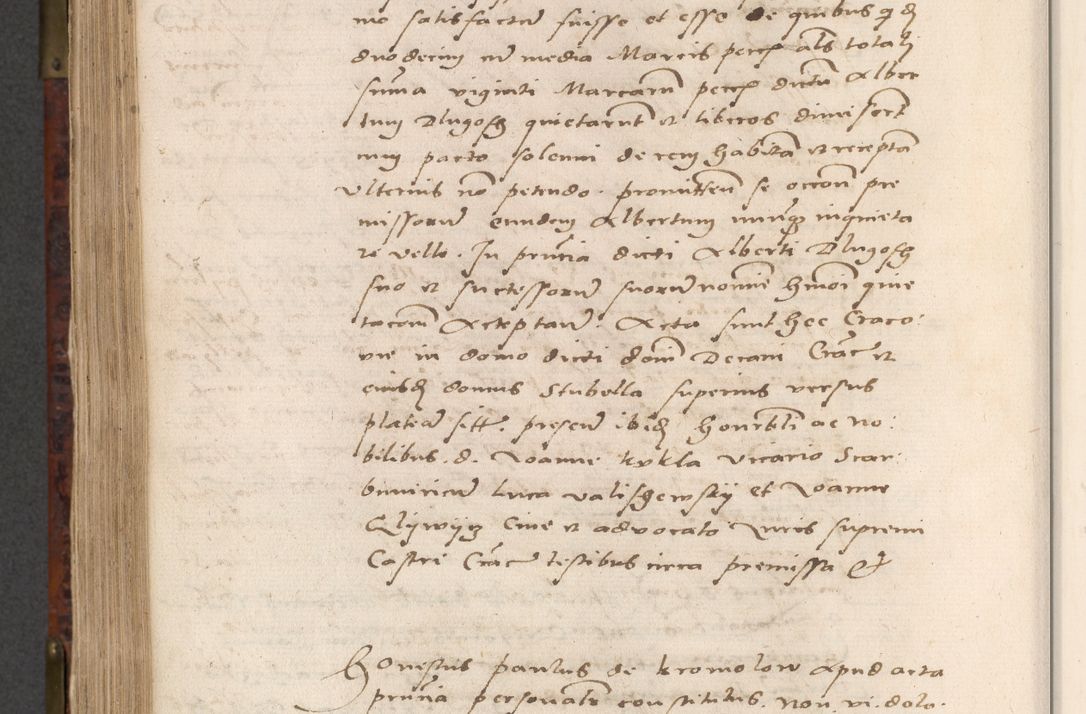 mo satisfactu fuisse et esse de quibus qd
duodecim cu media Marcis pecce als totali
suma viginti Marcaru pecce dictu Alber
tum Dlugosz quietarut et liberos dimisert
cum pacto solenni de rem habita et recepta
vlterius no petendo. promitten se occon pre
missoru eundem Albertum nunqz inquieta
re velle. In pntia dicti Alberti Dlugosz
suo et successoru suoru nomine hmoi quie
tacom Acceptan. Acta sunt hec Craco:
vie in domo dicti domi Decani Crac et
eiusd domus Stubella superius versus
platea sitt. presen ibid honorbli ac no:
bilibus. d. Joanne kykla vicario Scar:
bimiricen Luca Valisschewsky et Joanne
Clywyg Cive et advocato Juris supremi
Castri Crac testibus circa premissa
Honestus paulus de kromolow Apud acta
pntia personalr constitutus. Non vi. dolo.